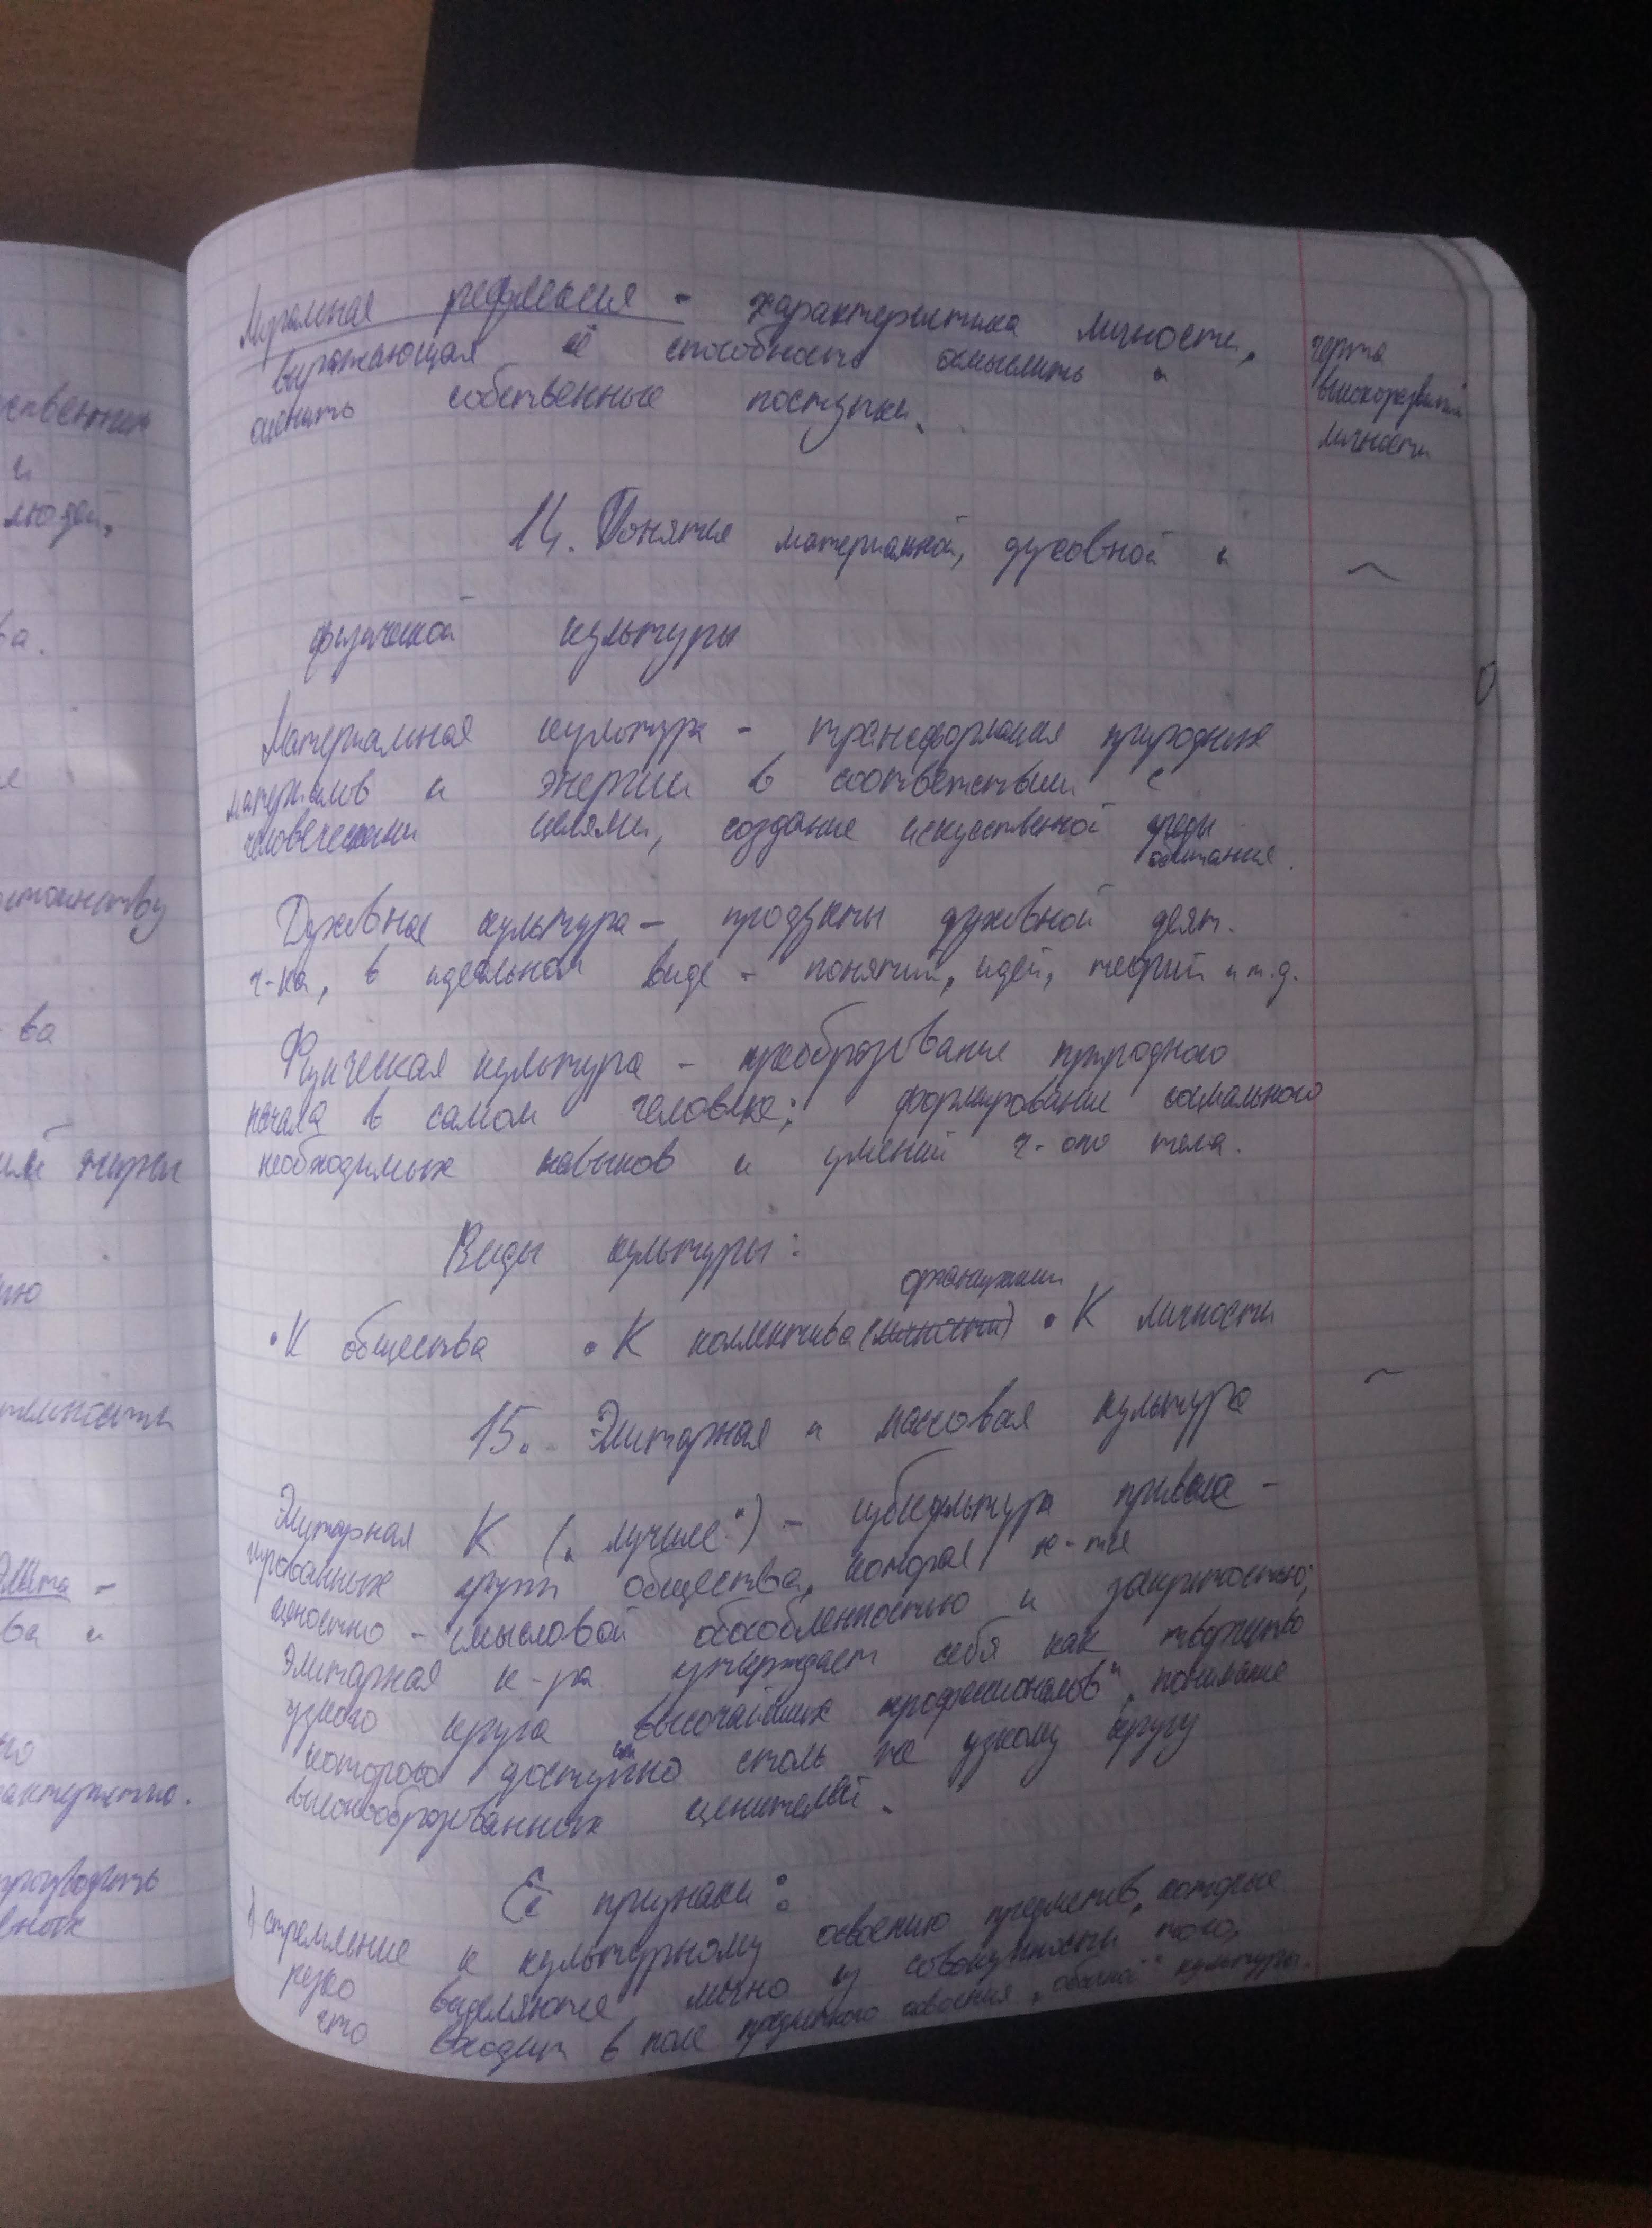 ственных
и
людей,
ва.
стоинству
ва
Элита -
ва и
актерно.
производить
Моральная рефлексия - характеристика личности,
выражающая её способность осмыслить и
оценить собственные поступки.
черта
высокоразвитой
личности
14. Понятия материальной, духовной и
физической культуры
Материальная культура - трансформация природных
материалов и энергии в соответствии с
человеческими целями, создание искуственной среды
обитания.
Духовная культура - продукты духовной деят.
ч-ка, в идеальном виде - понятий, идей, теорий и т.д.
Физическая культура - преобразование природного
начала в самом человеке; формирование социального
необходимых навыков и умений ч-ого тела.
Виды культуры:
организации
• К общества • К коллектива (личности) • К личности
15. Элитарная и массовая культура
Элитарная К („лучшее“) - субкультура привеле-
гированных групп общества, которая х-тся
ценостно-смысловой обособленностью и закрытостью;
Элитарная к-ра утверждает себя как творчество
узкого круга „высочайших профессионалов“, понимание
которого доступно столь же узкому кругу
высокообразованных ценителей.
Её признаки:
1) стремление к культурному освоению предметов, которые
резко выделяются из совокупности того,
что входит в поле предметного освоения „обычной“ культуры.